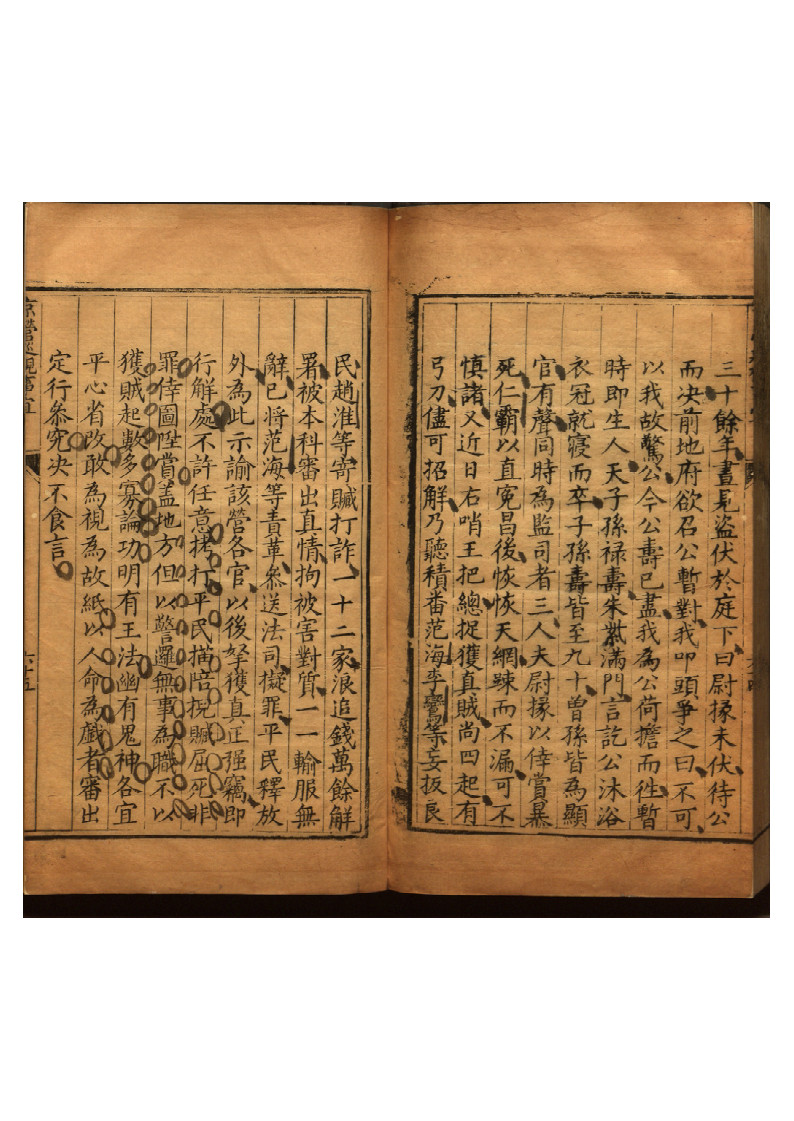 三十餘年晝見盜伏於庭下曰尉掾未伏待公
而決前地府欲召公暫對我叩頭爭之曰不可
以我故驚公今公壽已盡我為公荷擔而徃暫
時即生人天子孫祿壽朱紫滿門言訖公沐浴
衣冠就寢而卒子孫壽皆至九十曾孫皆為顯
官有聲同時為監司者三人夫尉掾以倖賞暴
死仁霸以直寃昌後恢恢天網踈而不漏可不
慎諸又近日右哨王把總捉獲真賊尚四起有
弓刀儘可招解乃聽積番范海李鸞等妄扳良
民趙淮等寄贓打詐一十二家浪追錢萬餘解
署被本科審出真情拘被害對質一一輸服無
辭已將范海等責革叅送法司擬罪平民釋放
外為此示諭該營各官以後拏獲真正强竊即
行解處不許任意拷打平民描陪挽贓屈死非
罪倖圖陞賞盖地方但以警邏無事為職不以
獲賊起數多寡論功明有王法幽有鬼神各宜
平心省改敢為視為故紙以人命為戲者審出
定行叅究決不食言
京營巡視事宜
六十五